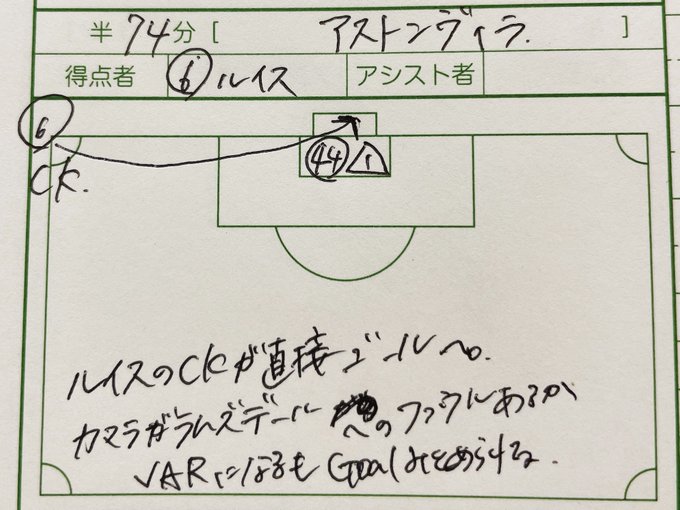 半 74分 [ アストンヴィラ. ]
得点者 ⑥ ルイス アシスト者
6
CK.
44 1
ルイスのCKが直接ゴールへ。
カマラがラムズデールへのファウルあるか
VARになるもGoalみとめられる.